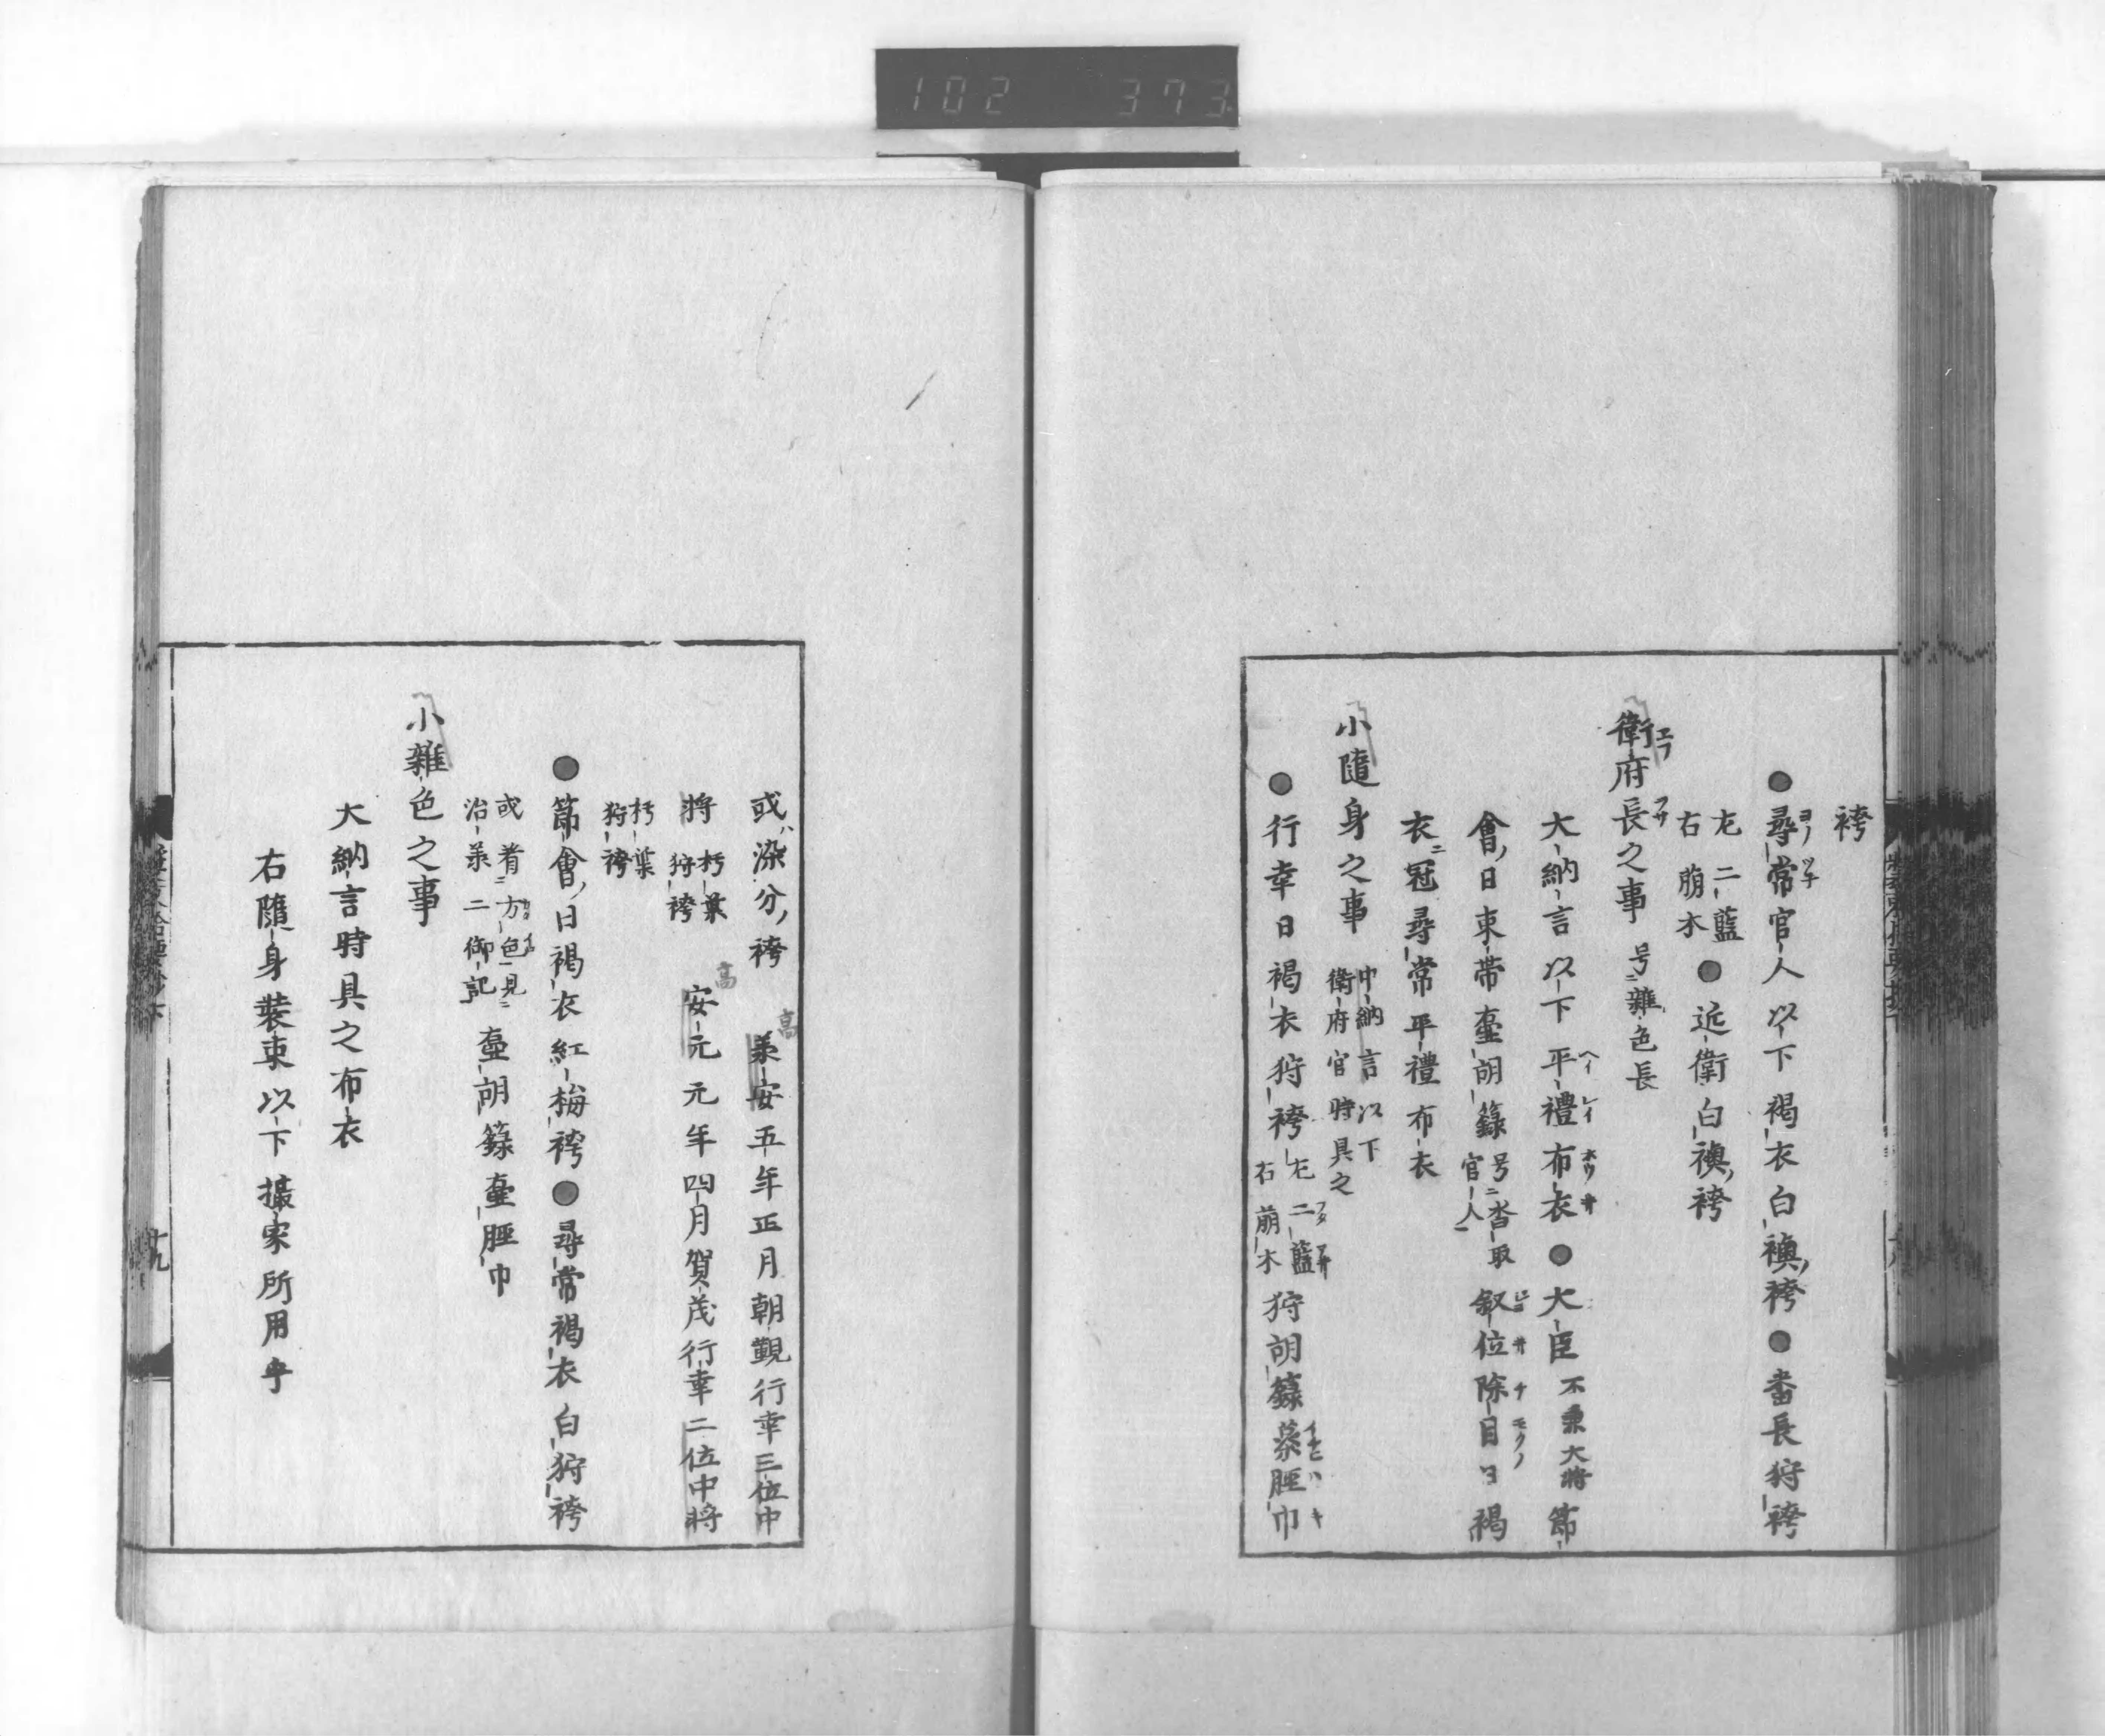 102 373
袴
●尋常官人以下褐衣白襖袴●番長狩袴
左二藍
右萠木
●近衛白襖袴
衛府長之事
号雑色長
大納言以下平禮布衣●大臣
不兼大将
節
會日束帯壷胡籙
号沓取
官人
叙位除目日褐
衣冠尋常平禮布衣
小隨身之事
中納言以下
衛府官時具之
●行幸日褐衣狩袴
左二藍
右萠木
狩胡籙藁脛巾
或染分袴
高
義安五年正月朝覲行幸三位中
将
朽葉
狩袴
高
安元元年四月賀茂行幸二位中将
朽葉
狩袴
●節會日褐衣紅梅袴●尋常褐衣白狩袴
或着方色見
治義二御記
壷胡籙壷脛巾
小雜色之事
大納言時具之布衣
右隨身装束以下撮家所用乎
十九